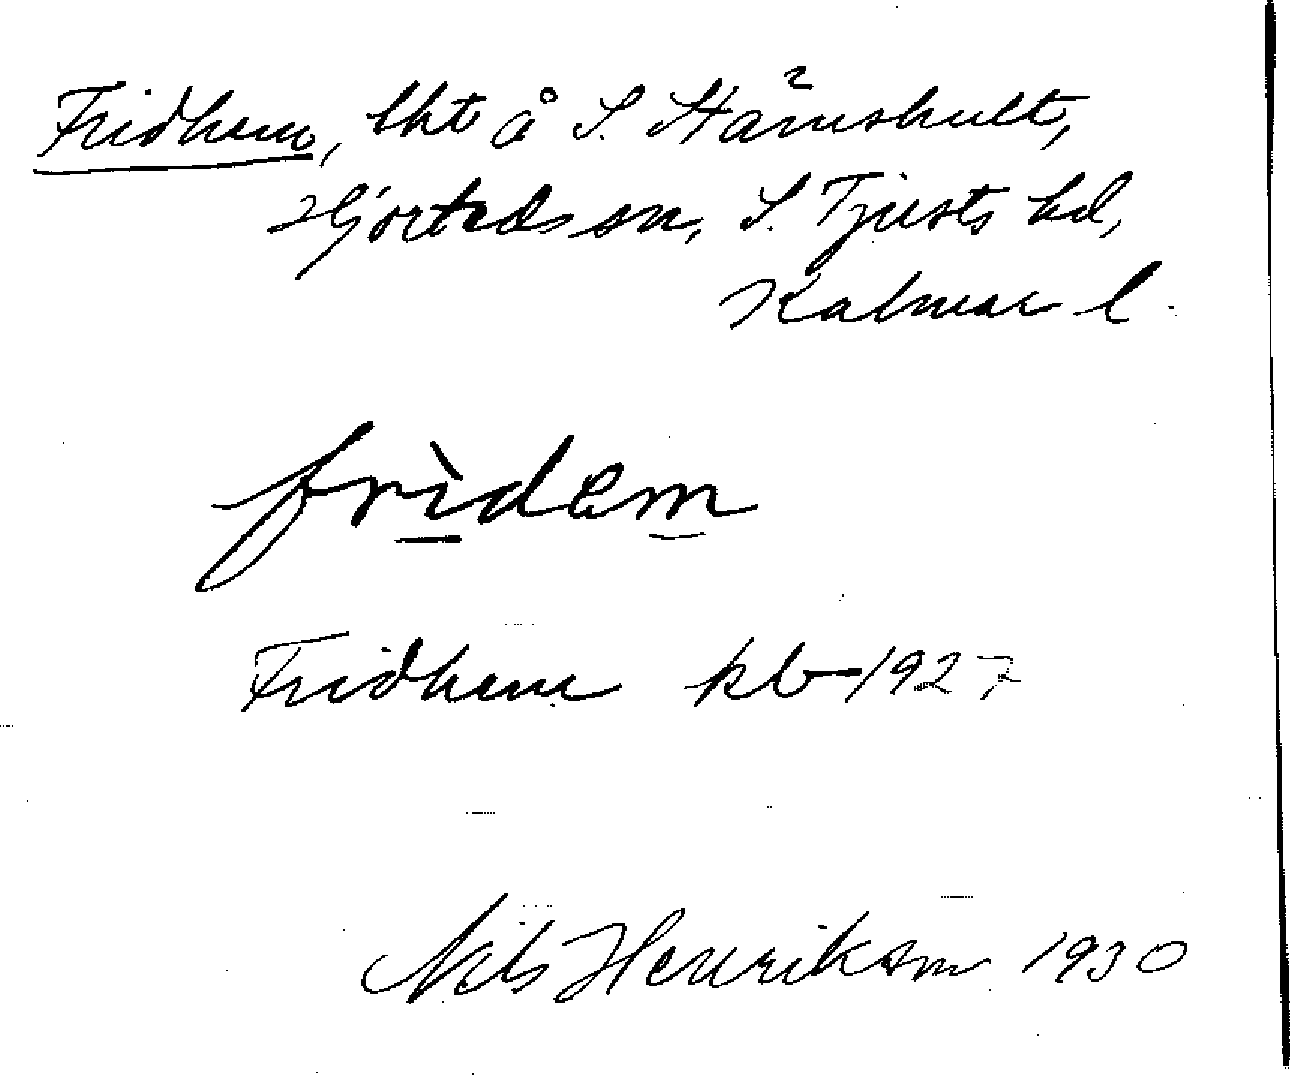 Fridhem, lht å S. Hämshult,
Hjorteds sn, S. Tjusts hd,
Kalmar l.
frìdem
Fridhem kb 1927
Nils Henrikson 1930